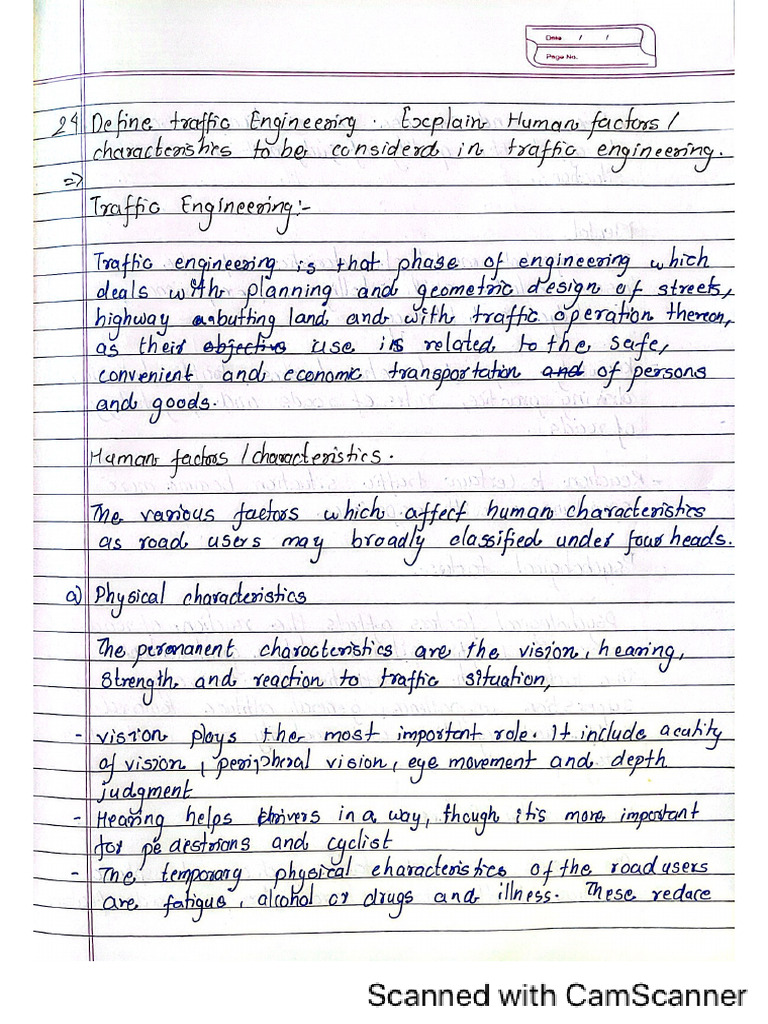 Date / /
Page No.
24 Define traffic Engineering. Explain Human factors /
characteristics to be considerd in traffic engineering.
=>
Traffic Engineering:-
Traffic engineering is that phase of engineering which
deals with planning and geometric design of streets,
highway abutting land and with traffic operation thereon,
as their objective use is related to the safe,
convenient and economic transportation and of persons
and goods.
Human factors / characteristics.
The various factors which affect human characteristics
as road users may broadly classified under four heads.
a) Physical characteristics
The permanent characteristics are the vision, hearing,
strength and reaction to traffic situation,
- vision plays the most important role. It include acutity
of vision, peripheral vision, eye movement and depth
judgment
- Hearing helps drivers in a way, though it's more important
for pedestrians and cyclist
- The temporary physical characteristics of the road users
are fatigue, alcohol or drugs and illness. These reduce
Scanned with CamScanner